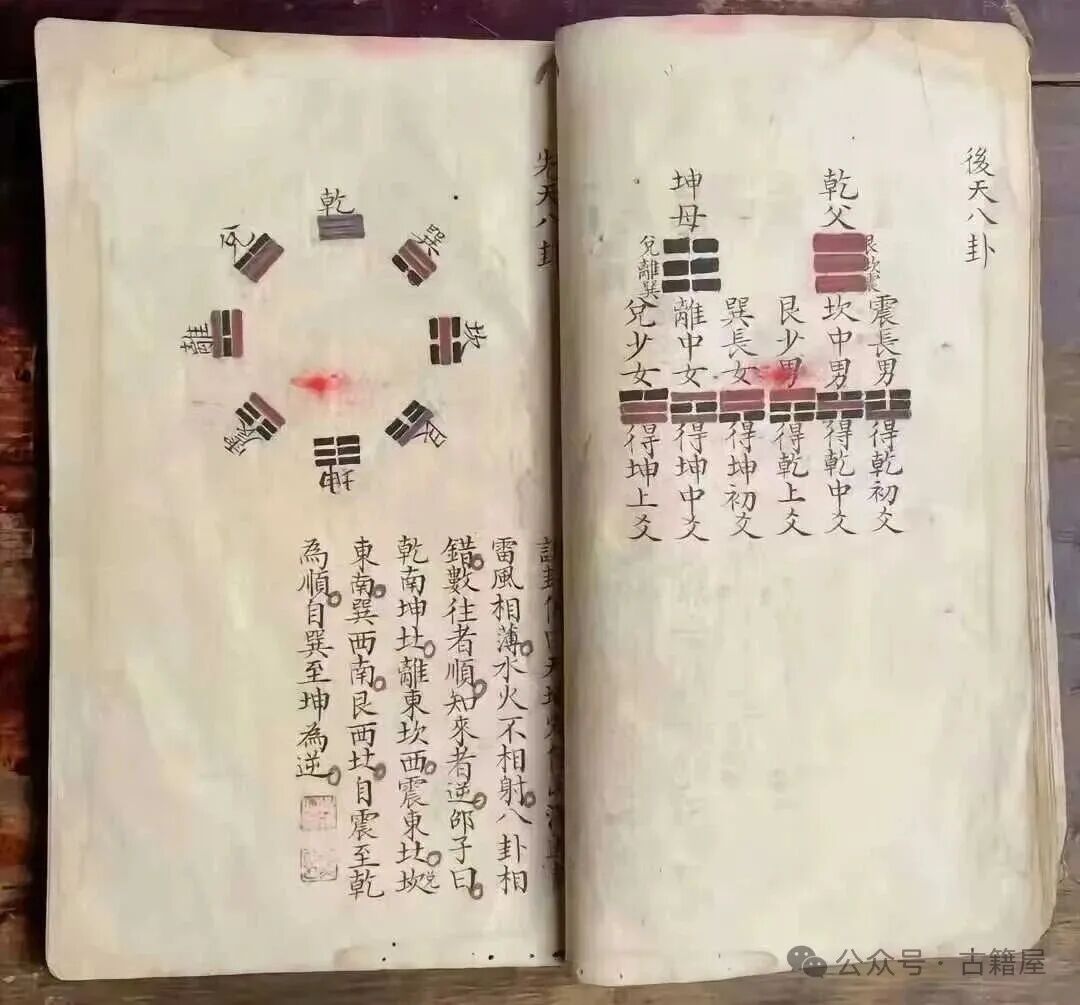 後天八卦
乾父
艮坎震
坤母
兌離巽
震長男
得乾初爻
坎中男
得乾中爻
艮少男
得乾上爻
巽長女
得坤初爻
離中女
得坤中爻
兌少女
得坤上爻
先天八卦
乾
兌
離
震
巽
坎
艮
坤
雷風相薄。水火不相射。八卦相
錯。數往者順。知來者逆。邵子曰。
乾南坤北。離東坎西。震東北。坎
兌
東南。巽西南。艮西北。自震至乾
為順。自巽至坤為逆。
公众号·古籍屋